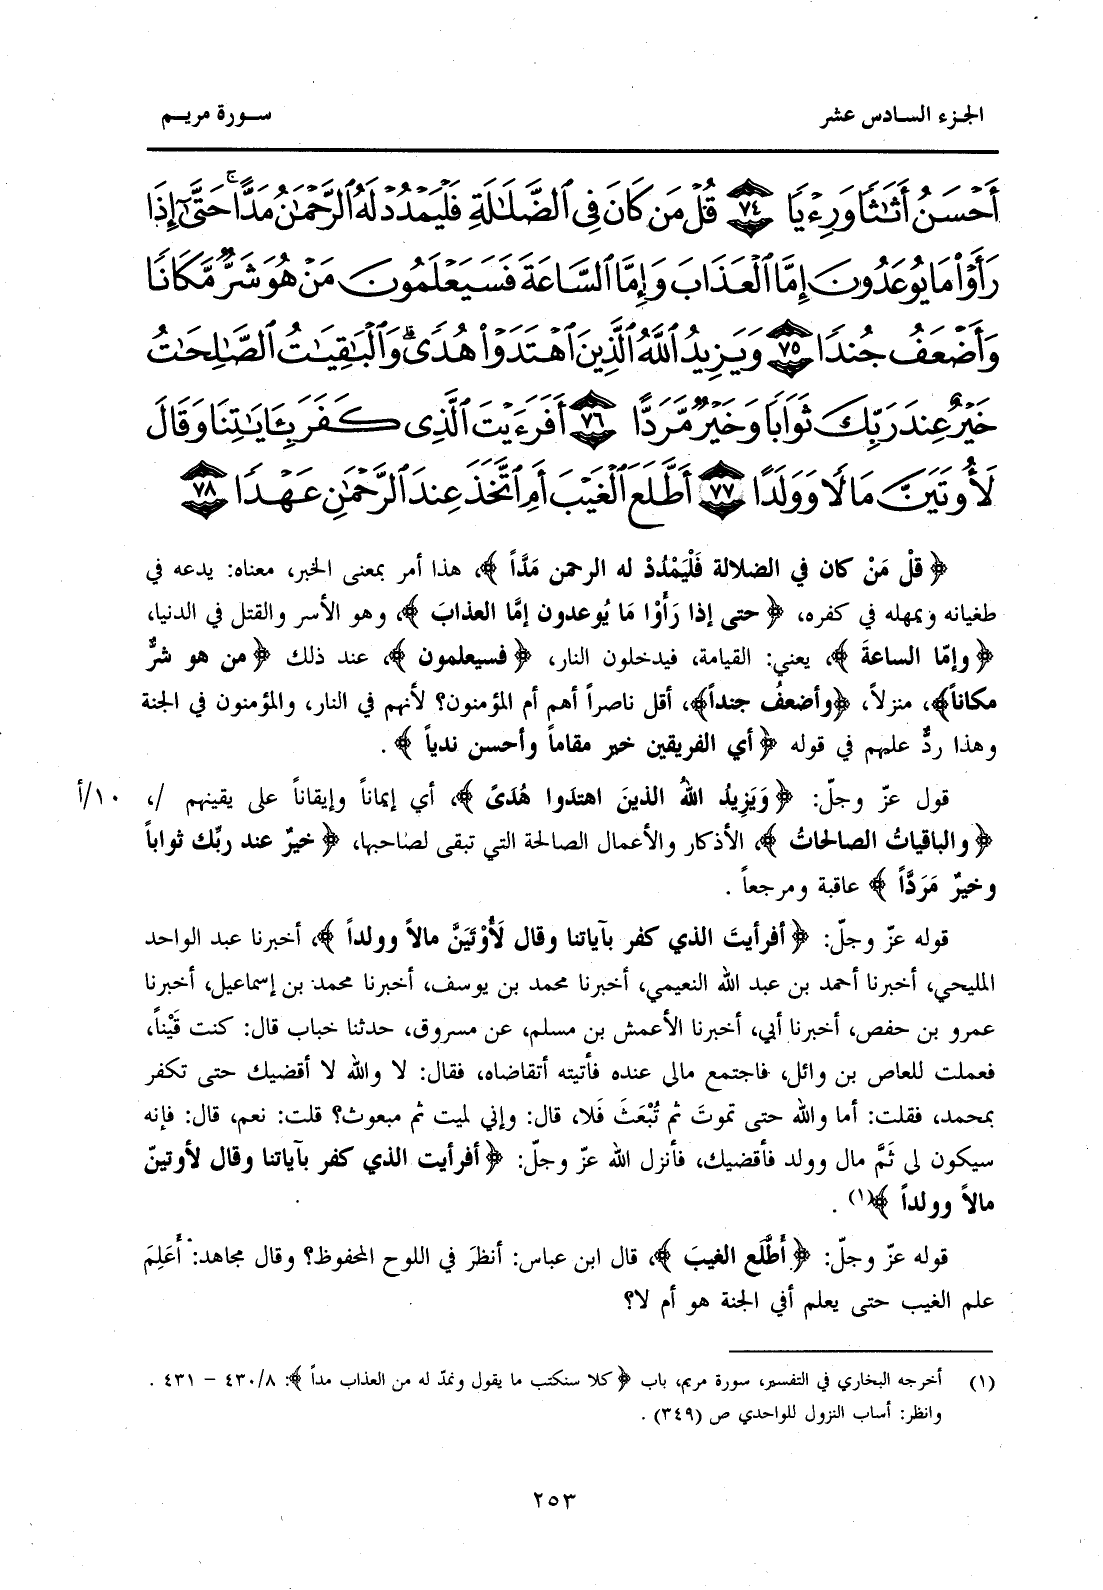 الجزء السادس عشر
سورة مريم
أَحْسَنُ أَثَٰثًا وَرِءْيًا ٧٤ قُلْ مَن كَانَ فِي الضَّلَٰلَةِ فَلْيَمْدُدْ لَهُ الرَّحْمَٰنُ مَدًّا ۚ حَتَّىٰٓ إِذَا
رَأَوْا۟ مَا يُوعَدُونَ إِمَّا الْعَذَابَ وَإِمَّا السَّاعَةَ فَسَيَعْلَمُونَ مَنْ هُوَ شَرٌّ مَّكَانًا
وَأَضْعَفُ جُندًا ٧٥ وَيَزِيدُ اللَّهُ الَّذِينَ اهْتَدَوْا۟ هُدًى ۗ وَالْبَٰقِيَٰتُ الصَّٰلِحَٰتُ
خَيْرٌ عِندَ رَبِّكَ ثَوَابًا وَخَيْرٌ مَّرَدًّا ٧٦ أَفَرَءَيْتَ الَّذِي كَفَرَ بِـَٔايَٰتِنَا وَقَالَ
لَأُوتَيَنَّ مَالًا وَوَلَدًا ٧٧ أَطَّلَعَ الْغَيْبَ أَمِ اتَّخَذَ عِندَ الرَّحْمَٰنِ عَهْدًا ٧٨
﴿ قلْ مَنْ كان في الضلالة فَلْيَمْدُدْ له الرحمن مَدَّاً ﴾، هذا أمر بمعنى الخبر، معناه: يدعه في
طغيانه ويمهله في كفره، ﴿ حتى إذا رَأَوْا مَا يُوعدون إمَّا العذابَ ﴾، وهو الأسر والقتل في الدنيا،
﴿ وإمّا الساعةَ ﴾، يعني: القيامة، فيدخلون النار، ﴿ فسيعلمون ﴾، عند ذلك ﴿ من هو شرٌّ
مكاناً﴾، منزلاً، ﴿وأضعفُ جنداً﴾، أقل ناصراً أهم أم المؤمنون؟ لأنهم في النار، والمؤمنون في الجنة
وهذا ردٌّ عليهم في قوله ﴿ أي الفريقين خير مقاماً وأحسن ندياً ﴾ .
قول عزّ وجلّ: ﴿ وَيَزِيدُ اللهُ الذينَ اهتدَوا هُدَىً ﴾، أي إيماناً وإيقاناً على يقينهم /، ١٠/أ
﴿ والباقياتُ الصالحاتُ ﴾، الأذكار والأعمال الصالحة التي تبقى لصاحبها، ﴿ خيرٌ عند ربِّك ثواباً
وخيرٌ مَرَدَّاً ﴾ عاقبة ومرجعاً .
قوله عزّ وجلّ: ﴿ أفرأيتَ الذي كفر بآياتنا وقال لَأُوْتَيَنَّ مالاً وولداً ﴾، أخبرنا عبد الواحد
المليحي، أخبرنا أحمد بن عبد الله النعيمي، أخبرنا محمد بن يوسف، أخبرنا محمد بن إسماعيل، أخبرنا
عمرو بن حفص، أخبرنا أبي، أخبرنا الأعمش بن مسلم، عن مسروق، حدثنا خباب قال: كنت قَيْناً،
فعملت للعاص بن وائل، فاجتمع مالي عنده فأتيته أتقاضاه، فقال: لا والله لا أقضيك حتى تكفر
بمحمد، فقلت: أما والله حتى تموتَ ثم تُبْعَثَ فَلا، قال: وإني لميت ثم مبعوث؟ قلت: نعم، قال: فإنه
سيكون لي ثَمَّ مال وولد فأقضيك، فأنزل الله عزّ وجلّ: ﴿ أفرأيت الذي كفر بآياتنا وقال لأوتينّ
مالاً وولداً ﴾(١) .
قوله عزّ وجلّ: ﴿ أَطَّلَع الغيبَ ﴾، قال ابن عباس: أنظرَ في اللوح المحفوظ؟ وقال مجاهد: أَعَلِمَ
علم الغيب حتى يعلم أفي الجنة هو أم لا؟
(١) أخرجه البخاري في التفسير، سورة مريم، باب ﴿ كلا سنكتب ما يقول ونمدّ له من العذاب مداً ﴾: ٤٣٠/٨ – ٤٣١ .
وانظر: أساب النزول للواحدي ص (٣٤٩) .
٢٥٣